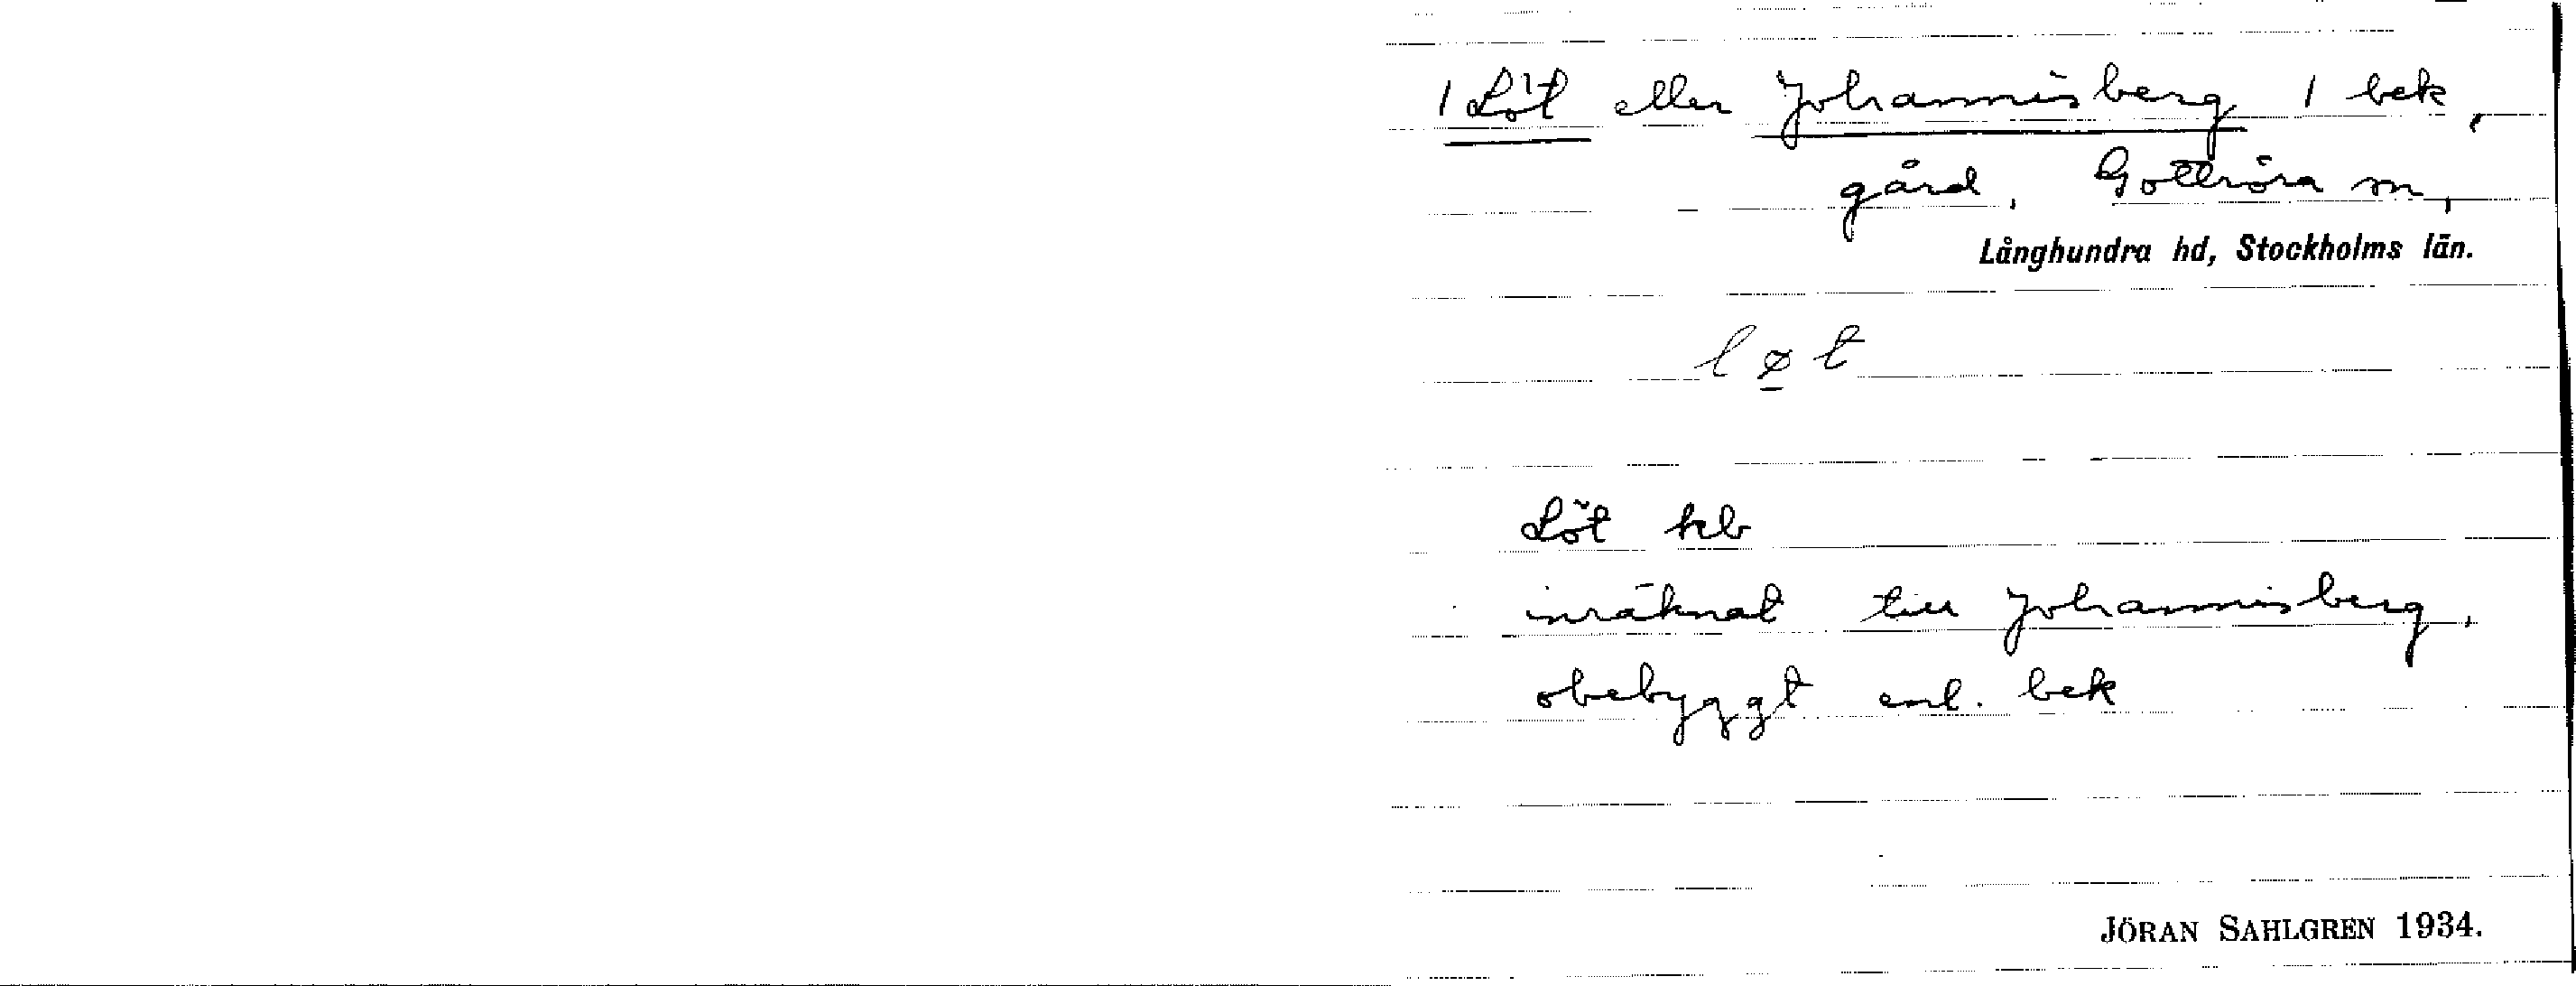 / Löt eller Johannisberg / bek,
gård, Gottröra sn,
Långhundra hd, Stockholms län.
lø̲t
Löt kb
inräknat till Johannisberg,
obebyggt enl. bek
JÖRAN SAHLGREN 1934.